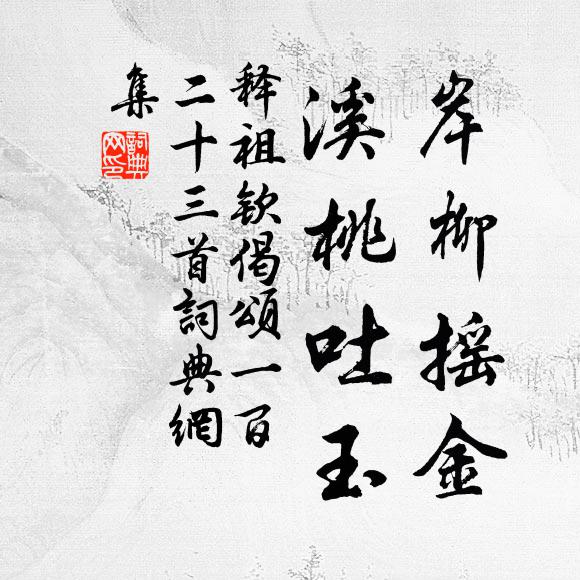 岸柳摇金
溪桃吐玉
释祖钦偈頌一百
二十三首詞典網
集
詞典
网印